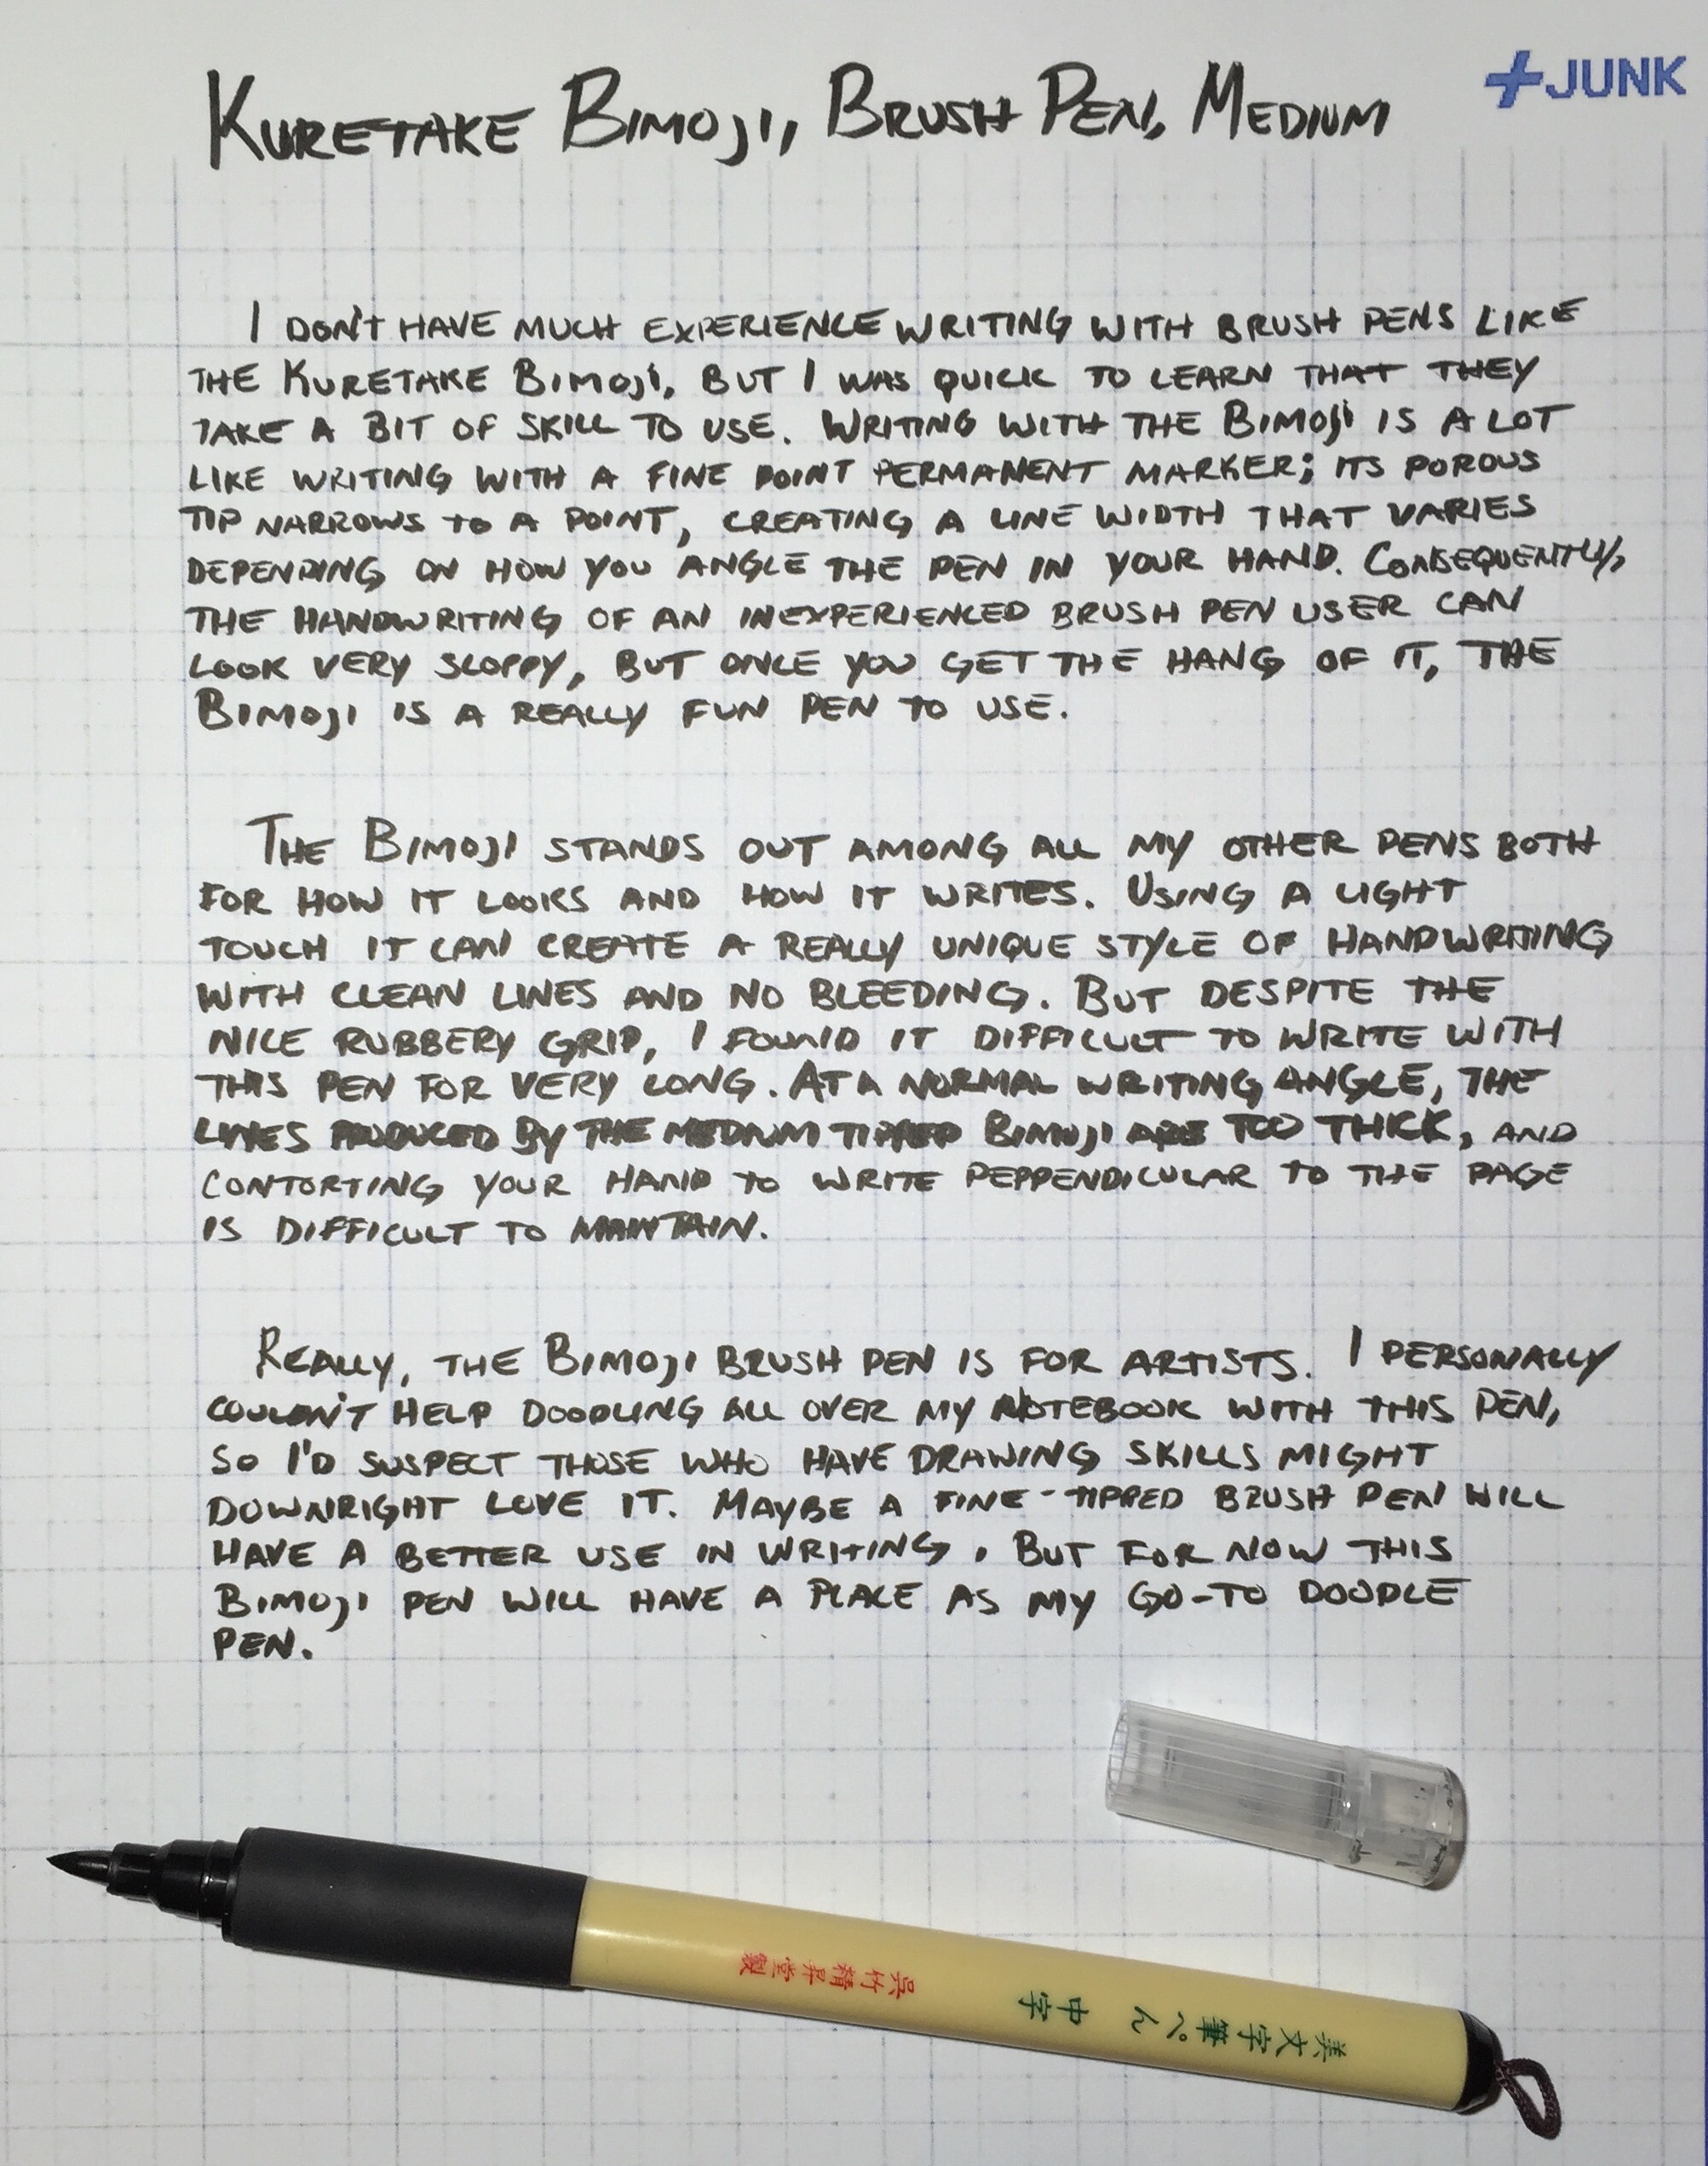 KURETAKE BIMOJI, BRUSH PEN, MEDIUM
+JUNK
I DON'T HAVE MUCH EXPERIENCE WRITING WITH BRUSH PENS LIKE
THE KURETAKE BIMOJI, BUT I WAS QUICK TO LEARN THAT THEY
TAKE A BIT OF SKILL TO USE. WRITING WITH THE BIMOJI IS A LOT
LIKE WRITING WITH A FINE POINT PERMANENT MARKER; ITS POROUS
TIP NARROWS TO A POINT, CREATING A LINE WIDTH THAT VARIES
DEPENDING ON HOW YOU ANGLE THE PEN IN YOUR HAND. CONSEQUENTLY,
THE HANDWRITING OF AN INEXPERIENCED BRUSH PEN USER CAN
LOOK VERY SLOPPY, BUT ONCE YOU GET THE HANG OF IT, THE
BIMOJI IS A REALLY FUN PEN TO USE.
THE BIMOJI STANDS OUT AMONG ALL MY OTHER PENS BOTH
FOR HOW IT LOOKS AND HOW IT WRITES. USING A LIGHT
TOUCH IT CAN CREATE A REALLY UNIQUE STYLE OF HANDWRITING
WITH CLEAN LINES AND NO BLEEDING. BUT DESPITE THE
NICE RUBBERY GRIP, I FOUND IT DIFFICULT TO WRITE WITH
THIS PEN FOR VERY LONG. AT A NORMAL WRITING ANGLE, THE
LINES PRODUCED BY THE MEDIUM TIPPED BIMOJI ARE TOO THICK, AND
CONTORTING YOUR HAND TO WRITE PEPPENDICULAR TO THE PAGE
IS DIFFICULT TO MAINTAIN.
REALLY, THE BIMOJI BRUSH PEN IS FOR ARTISTS. I PERSONALLY
COULDN'T HELP DOODLING ALL OVER MY NOTEBOOK WITH THIS PEN,
SO I'D SUSPECT THOSE WHO HAVE DRAWING SKILLS MIGHT
DOWNRIGHT LOVE IT. MAYBE A FINE-TIPPED BRUSH PEN WILL
HAVE A BETTER USE IN WRITING, BUT FOR NOW THIS
BIMOJI PEN WILL HAVE A PLACE AS MY GO-TO DOODLE
PEN.
美文字筆ぺん 中字
呉竹精昇堂製